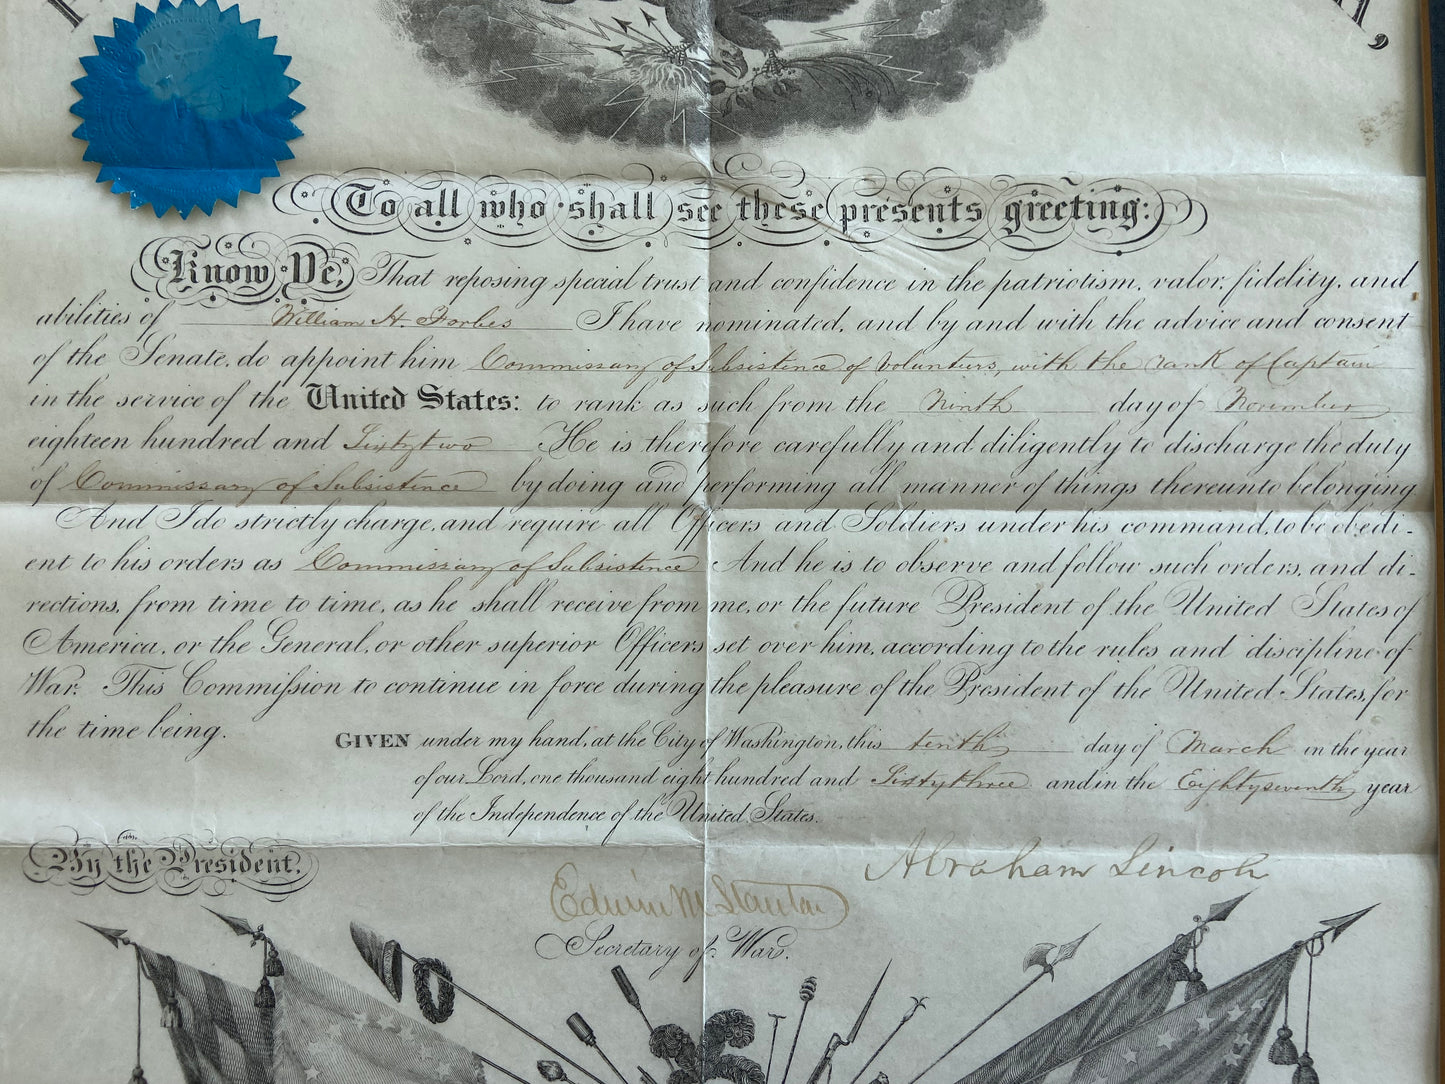 To all who shall see these presents greeting:
Know Ye, That reposing special trust and confidence in the patriotism, valor, fidelity, and
abilities of William H. Forbes I have nominated, and by and with the advice and consent
of the Senate, do appoint him Commissary of Subsistence of Volunteers, with the rank of Captain
in the service of the United States: to rank as such from the Ninth day of November
eighteen hundred and Sixty two He is therefore carefully and diligently to discharge the duty
of Commissary of Subsistence by doing and performing all manner of things thereunto belonging.
And I do strictly charge, and require all Officers and Soldiers under his command, to be obedi-
ent to his orders as Commissary of Subsistence And he is to observe and follow such orders, and di-
rections, from time to time, as he shall receive from me, or the future President of the United States of
America, or the General, or other superior Officers set over him, according to the rules and discipline of
War. This Commission to continue in force during the pleasure of the President of the United States, for
the time being.
GIVEN under my hand, at the City of Washington, this tenth day of March in the year
of our Lord, one thousand eight hundred and Sixty three and in the Eighty seventh year
of the Independence of the United States.
By the President.
Abraham Lincoln
Edwin M Stanton
Secretary of War.